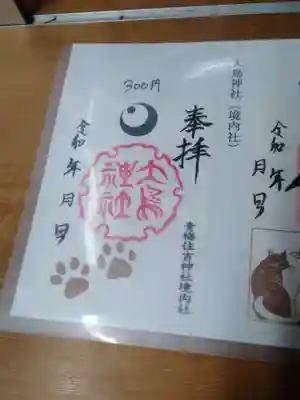 令和 月 日
大鳥神社(境内社)
奉拝
青梅住吉神社境内社
300円
大鳥
神社
令和 年 月 日